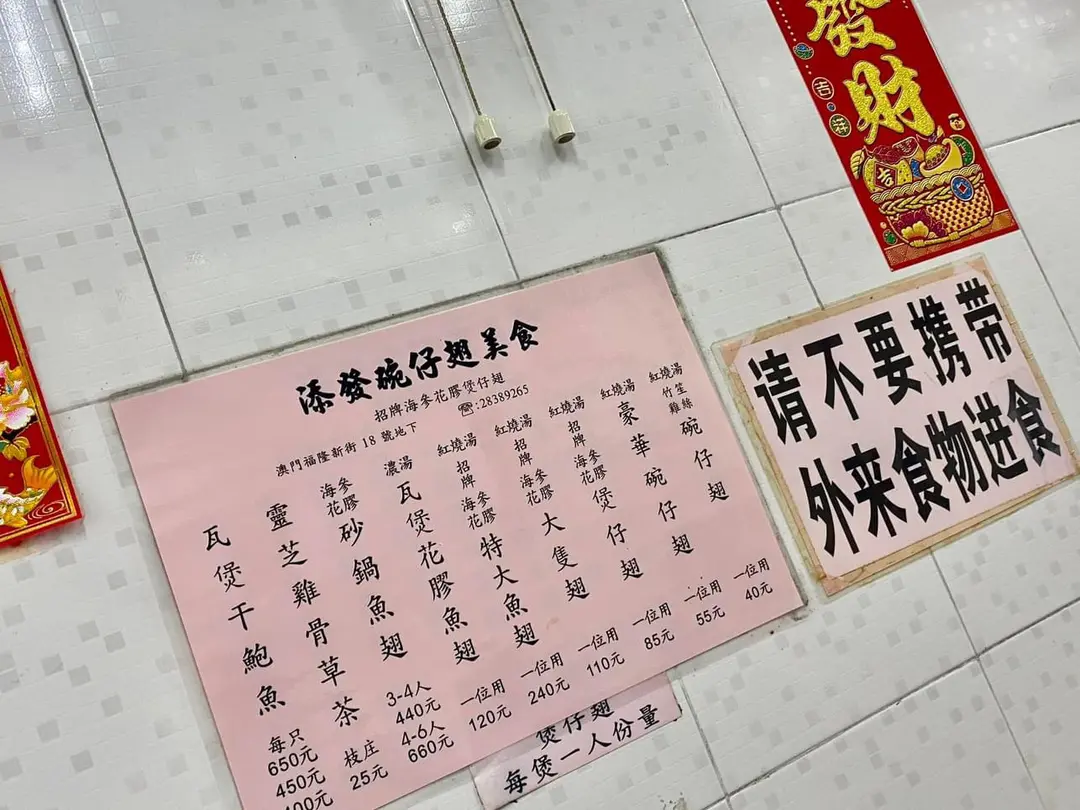 發財
吉祥
添發碗仔翅美食
招牌海參花膠煲仔翅
澳門福隆新街 18 號地下 ☎:28389265
紅燒湯
竹笙雞絲
碗仔翅
一位用
40元
紅燒湯
豪華碗仔翅
一位用
55元
紅燒湯
招牌海參花膠
煲仔翅
一位用
85元
紅燒湯
招牌海參花膠
大隻翅
一位用
110元
紅燒湯
招牌海參花膠
特大魚翅
一位用
240元
濃湯
瓦煲花膠魚翅
一位用
120元
海參花膠
砂鍋魚翅
3-4人
440元
4-6人
660元
靈芝雞骨草茶
枝庄
25元
瓦煲干鮑魚
每只
650元
450元
煲仔翅
每煲一人份量
请不要携带
外来食物进食